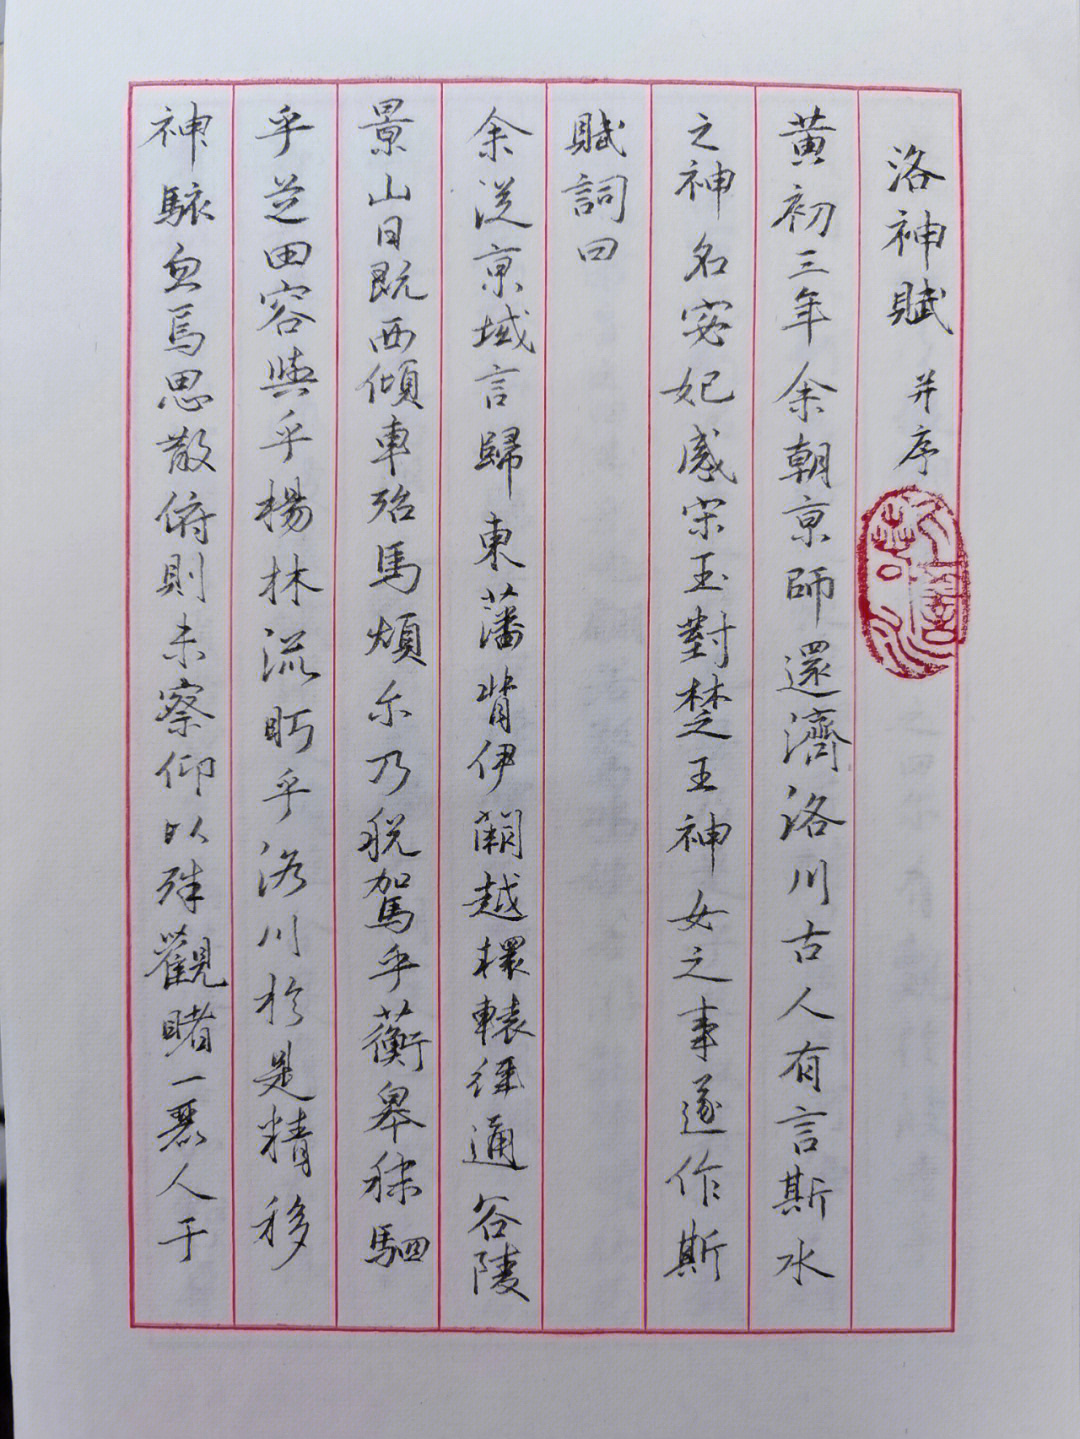 洛神賦 并序
黄初三年余朝京師還濟洛川古人有言斯水
之神名宓妃感宋玉對楚王神女之事遂作斯
賦詞曰
余從京域言歸東藩背伊闕越轘轅經通谷陵
景山日既西傾車殆馬煩尓乃税駕乎蘅皋秣駟
乎芝田容與乎楊林流眄乎洛川於是精移
神駭忽焉思散俯則未察仰以殊觀睹一麗人于